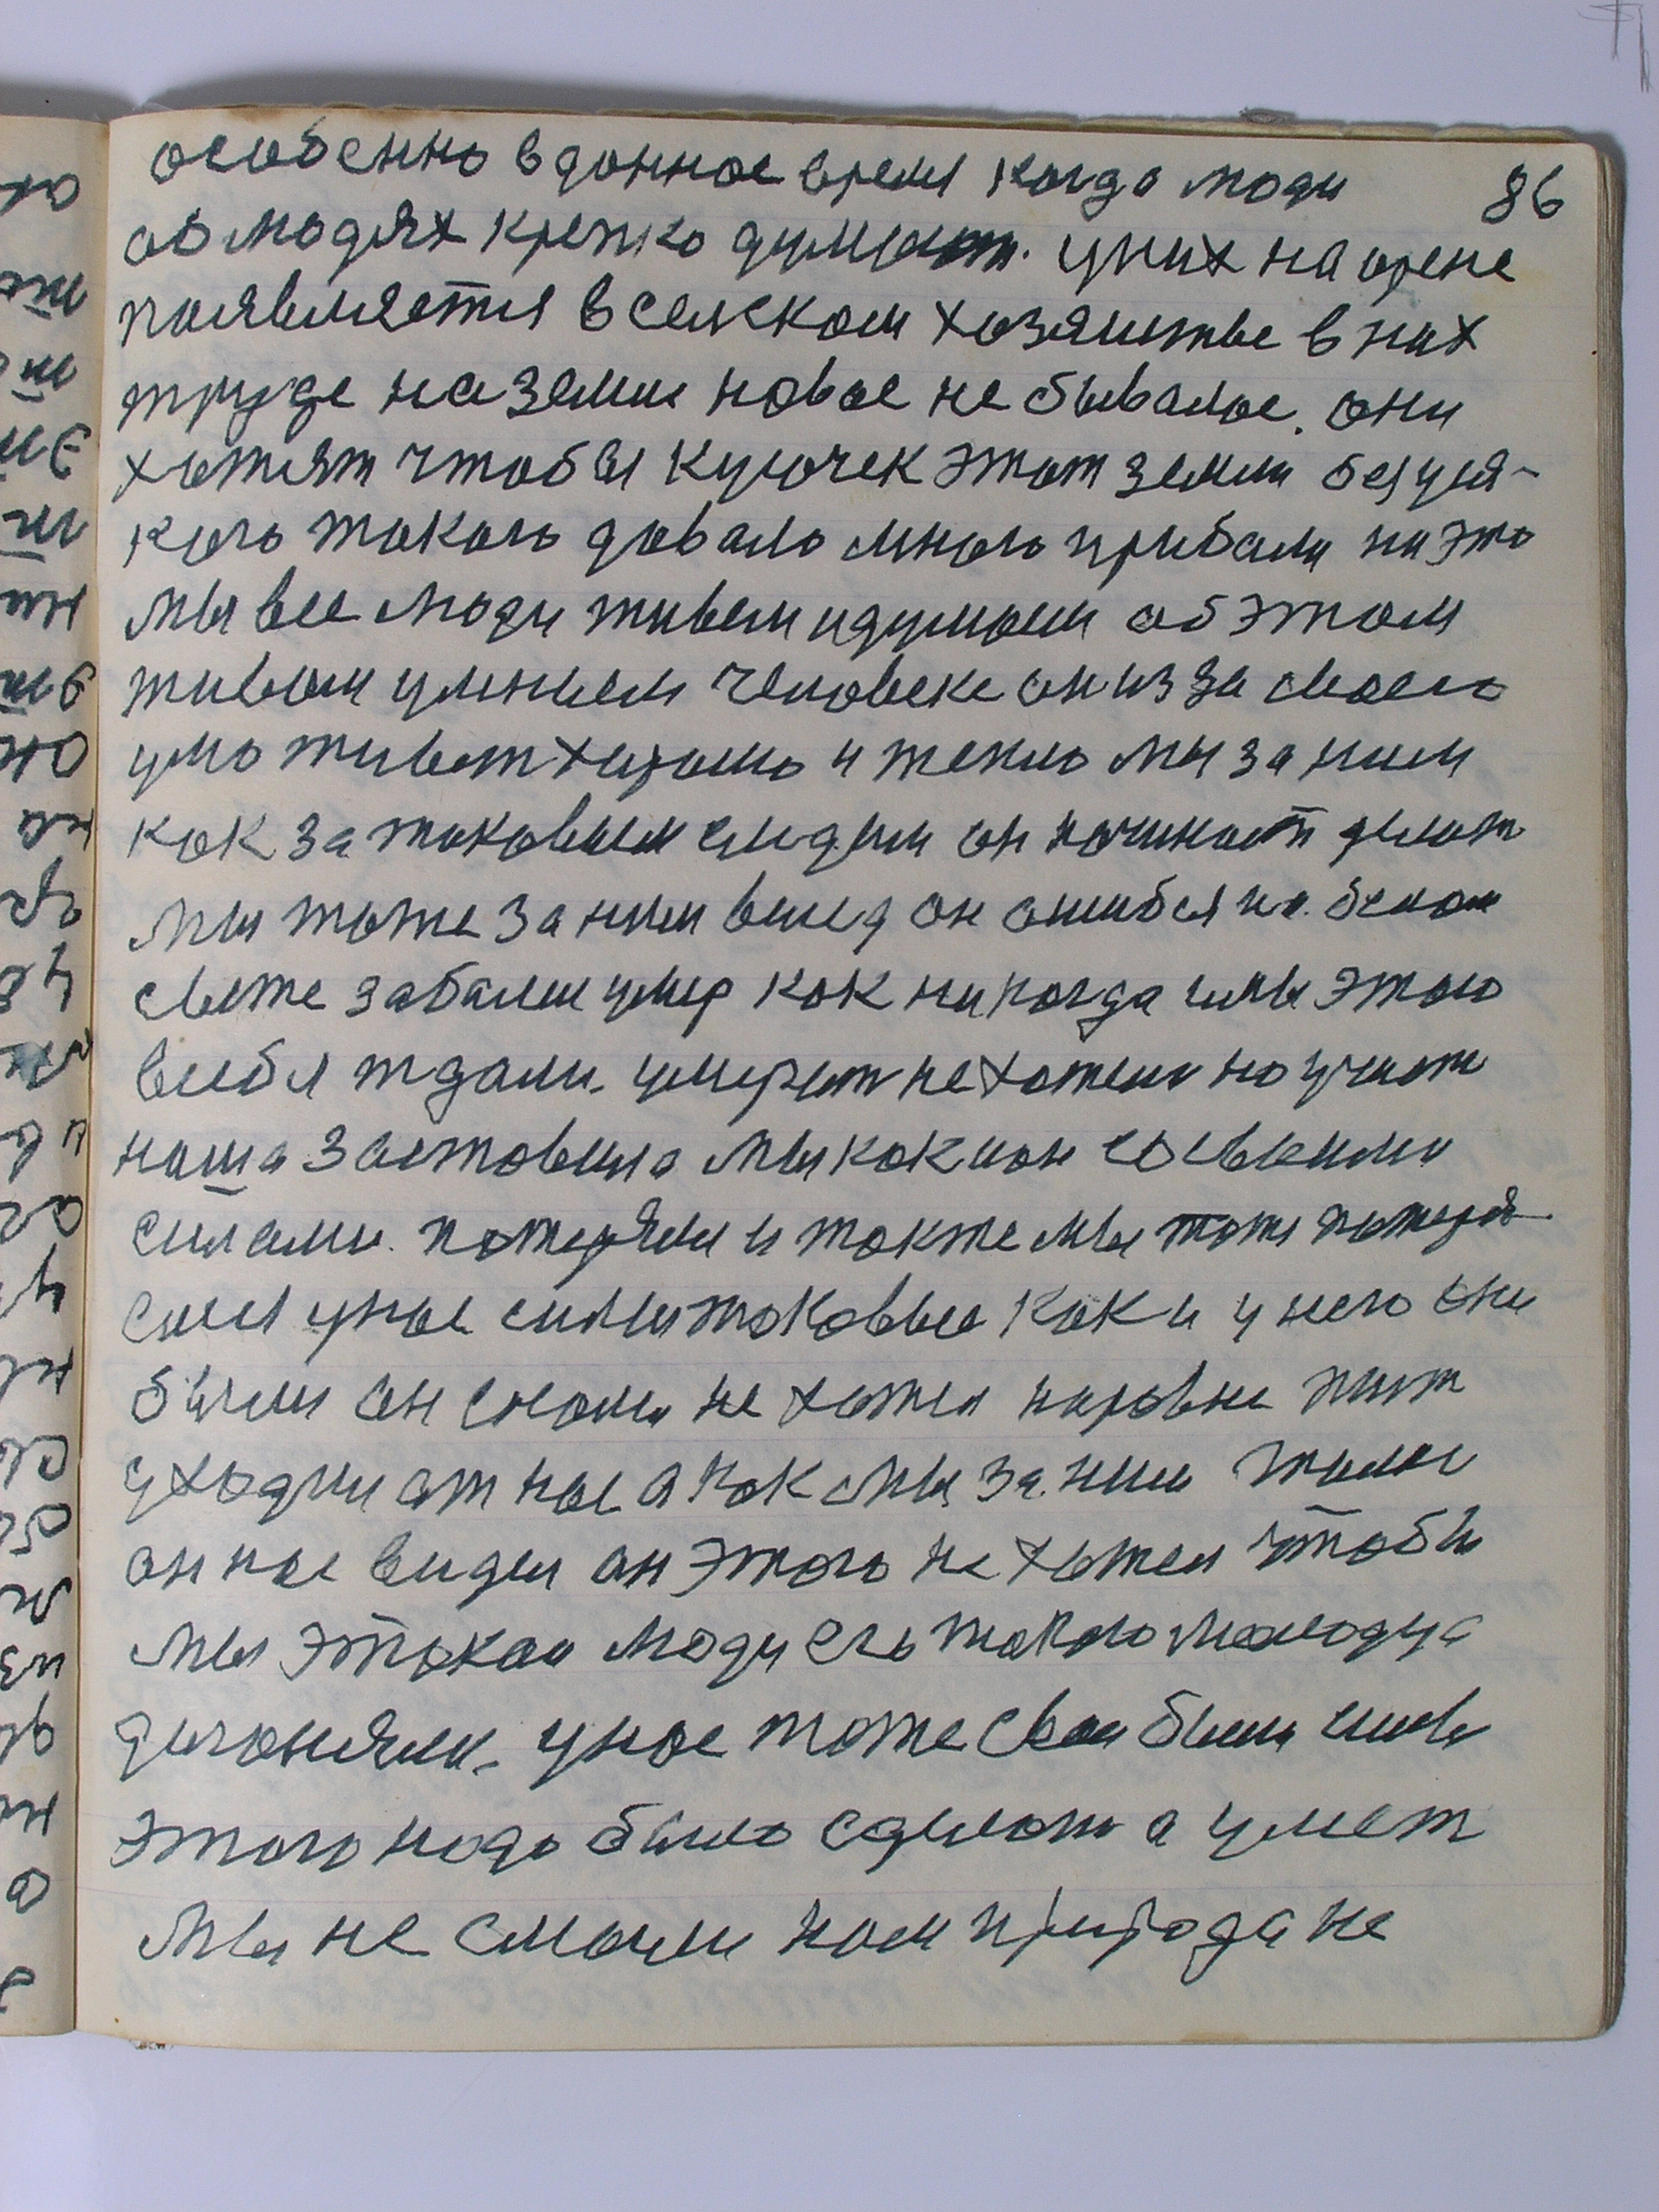 особенно вданное время когда люди 86
об людях крепко думают. уних на арене
появляется в селском хозяистве в них
труде на земли новое не бывалое. они
хотят чтобы кусочек этот земли без уся-
кого такого давало много прибали на это
мы все люди живем идумаем об этом
живом умным человеке он из за своего
ума живет хорошо и тепло мы за ним
как за таковым следим он начинает делат
мы тоже за ним вслед он ошибся на белом
свете заболел умер как никогда имы этого
всебя ждали. умерат не хотели но участ
наша заставила мы как ион со своими
силами. потеряли и также мы тоже потеря-
сил унас силы таковые как и у него они
были он снами не хотел наровне жит
уходил от нас а как мы за ним жили
он нас видел он этого не хотел чтобы
мы этакаи люди его такого молодца
догоняли. унас тоже свои были силы
этого надо было сделать а умет
мы не смогли нам природа не